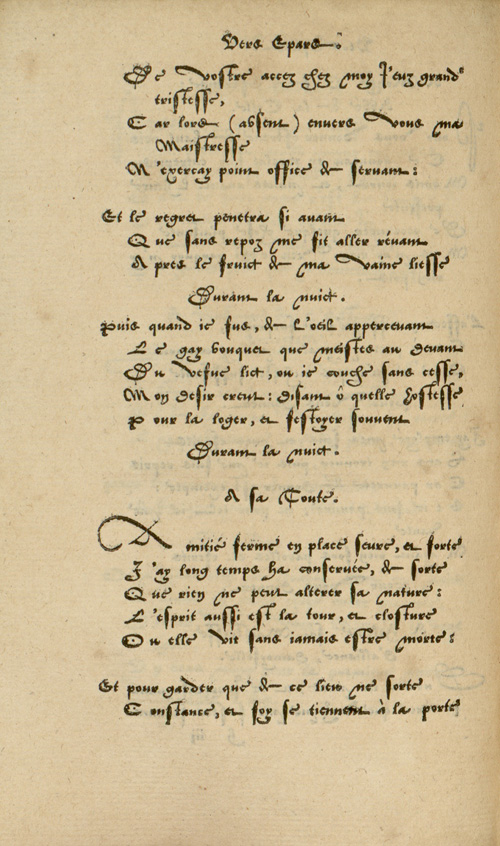 Vers Epars.
De vostre accez chez moy j'euz grand'
tristesse,
Car lors (absent) envers vous ma
Maistresse
N'exerçay point office de servant:
Et le regret penetra si avant
Que sans repoz me fit aller rêvant
Apres le fruict de ma vaine liesse
Durant la nuict.
Puis quand ie fus, & l'oeil appercevant
Le gay bouquet que meistes au devant
Du vefue lict, ou ie couche sans cesse,
Mon desir creut: disant ô quelle hostesse
Pour la loger, et festoyer souvent
Durant la nuict.
A sa Toute.
Amitié ferme en place seure, et forte
J'ay long temps ha conservée, de sorte
Que rien ne peut alterer sa nature:
L'esprit aussi est la tour, et closture
Ou elle vit sans iamais estre morte:
Et pour garder que de ce lieu ne sorte
Constance, et foy se tiennent à la porte